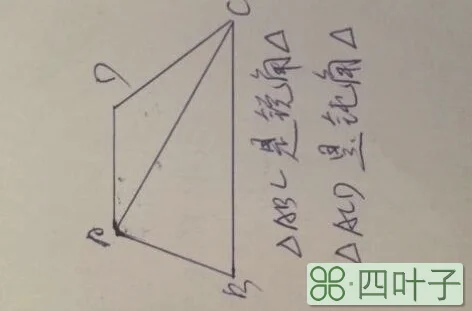 D
C
A
B
△ABC是锐角△
△ACD是钝角△
四叶子